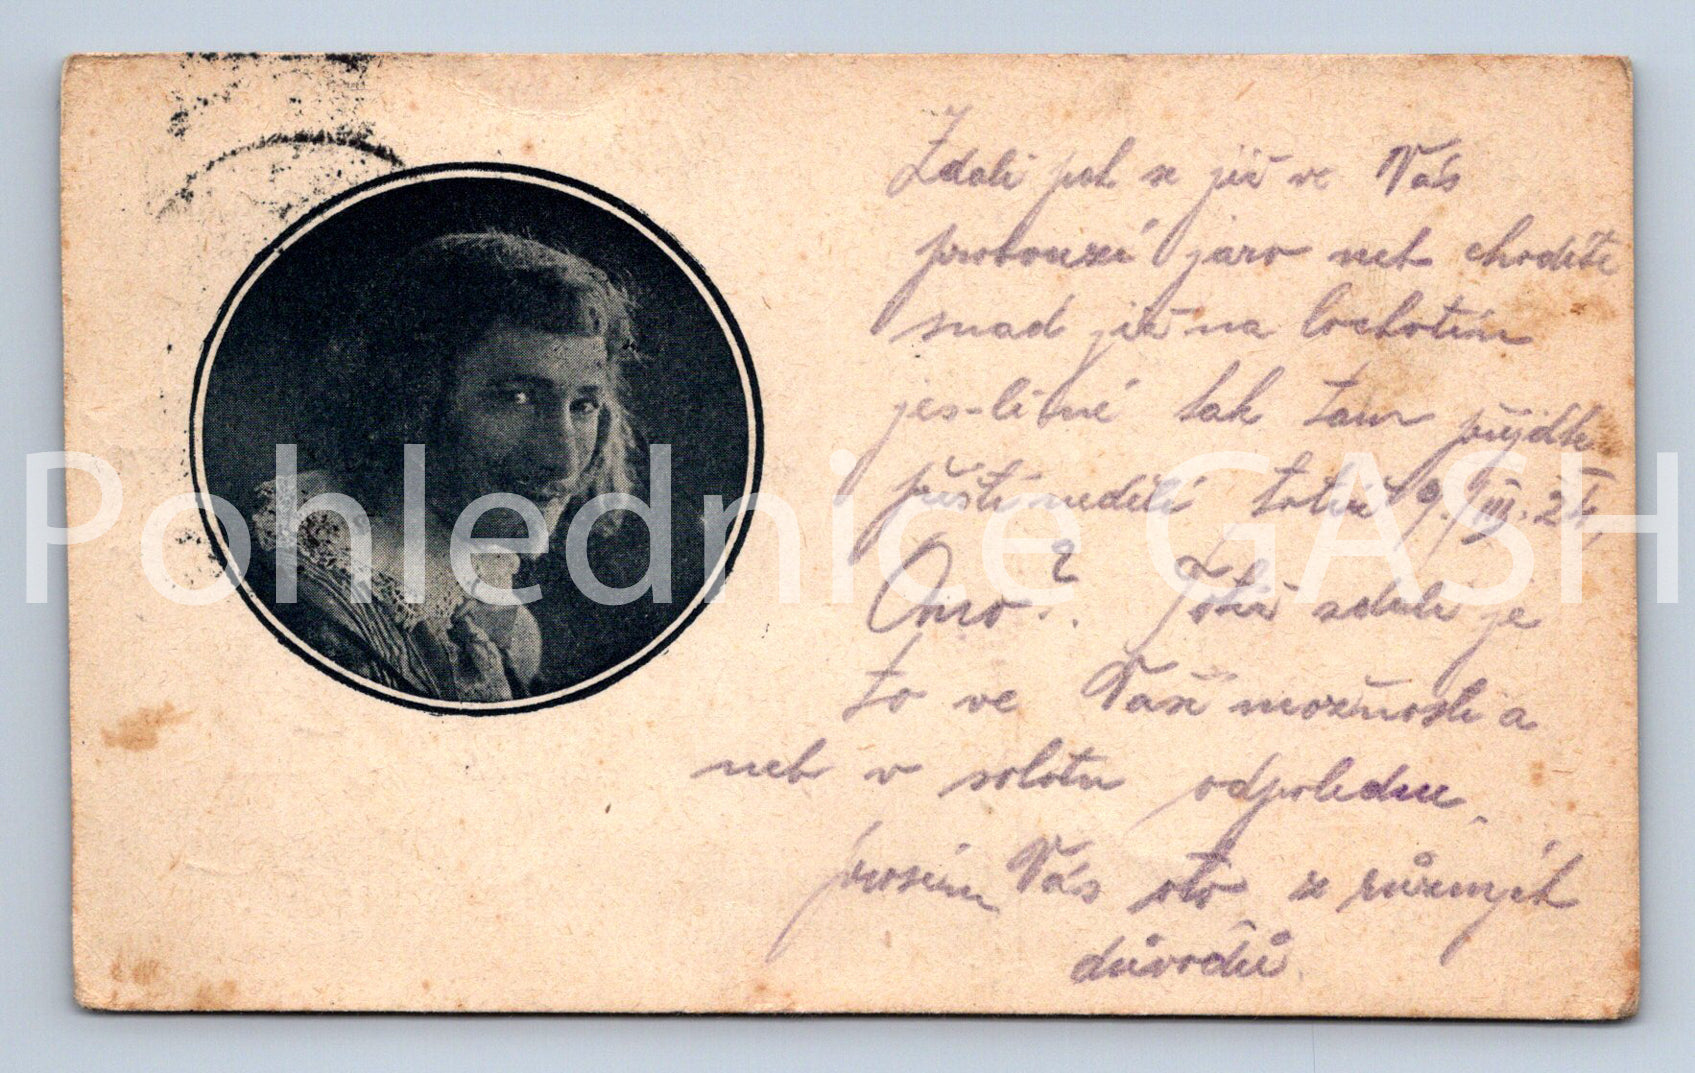 Zdali pak se již ve Vás
probouzí jaro neb chodíte
snad již na lochotín
jes-li né tak tam přijdte
příští neděli totiž 9./III. 24,
Ano? Totiž zdali je
to ve Vaší možnosti a
neb v sobotu odpoledne
prosím Vás oto z různých
důvodů.
Pohlednice GASH